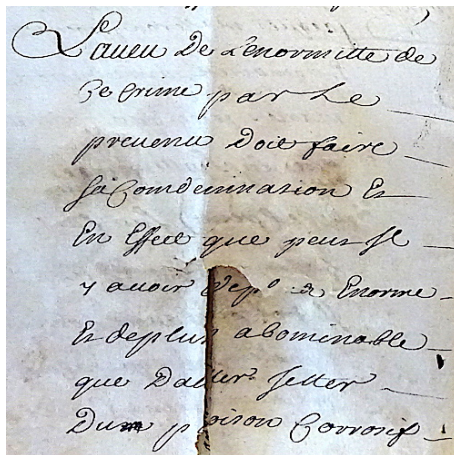 L'aueu De L'enormitte de
Ce Crime par Le
preuenu Doit faire
sa Comdemnation Et
En Effect que peut Jl
y auoir de plus Enorme
Et deplus abominable
que Daller Jetter
Dum poison Corrosif